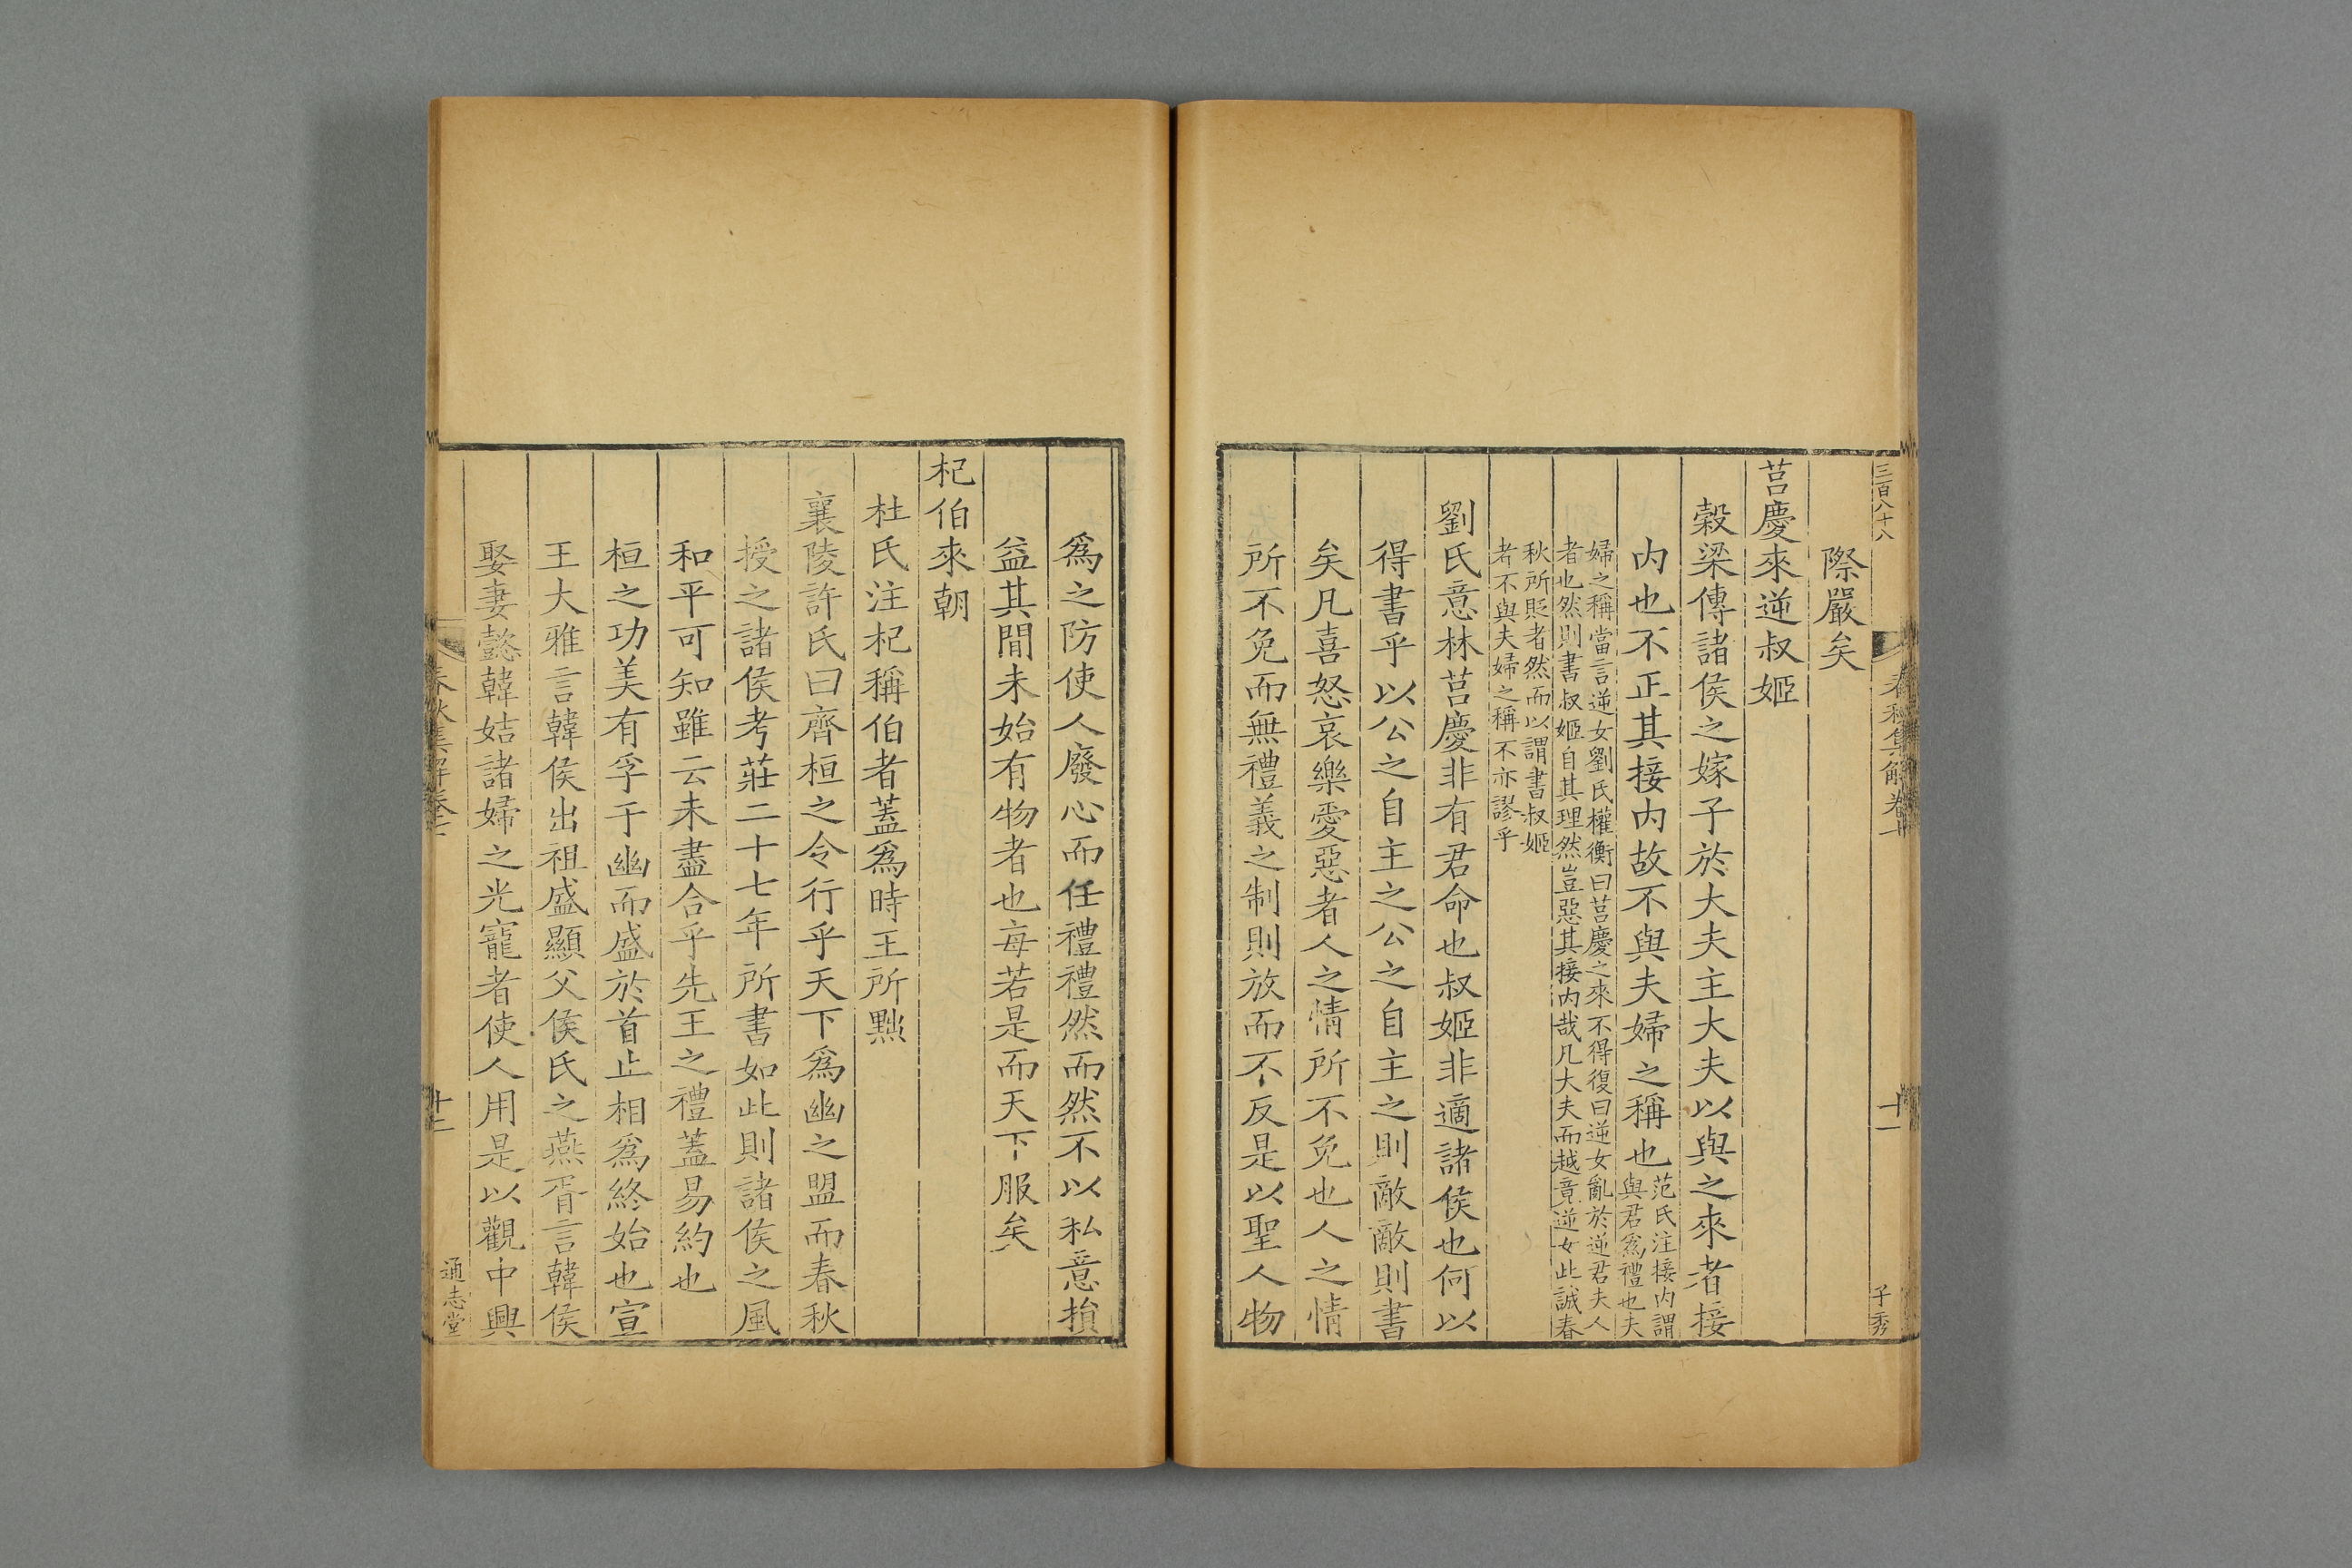 三百八十八
春秋集解卷七
十一
子秀
際嚴矣
莒慶來逆叔姬
穀梁傳諸侯之嫁子於大夫主大夫以與之來者接
内也不正其接内故不與夫婦之稱也范氏注接内謂
與君爲禮也夫
婦之稱當言逆女劉氏權衡曰莒慶之來不得復曰逆女亂於逆君夫人
者也然則書叔姬自其理然豈惡其接内哉凡大夫而越竟逆女此誠春
秋所貶者然而以謂書叔姬
者不與夫婦之稱不亦謬乎
劉氏意林莒慶非有君命也叔姬非適諸侯也何以
得書乎以公之自主之公之自主之則敵敵則書
矣凡喜怒哀樂愛惡者人之情所不免也人之情
所不免而無禮義之制則放而不反是以聖人物
爲之防使人廢心而任禮禮然而然不以私意損
益其間未始有物者也每若是而天下服矣
杞伯來朝
杜氏注杞稱伯者蓋爲時王所黜
襄陵許氏曰齊桓之令行乎天下爲幽之盟而春秋
授之諸侯考莊二十七年所書如此則諸侯之風
和平可知雖云未盡合乎先王之禮蓋易約也
桓之功美有孚于幽而盛於首止相爲終始也宣
王大雅言韓侯出祖盛顯父侯氏之燕胥言韓侯
娶妻懿韓姞諸婦之光寵者使人用是以觀中興
春秋集解卷七
十二
通志堂